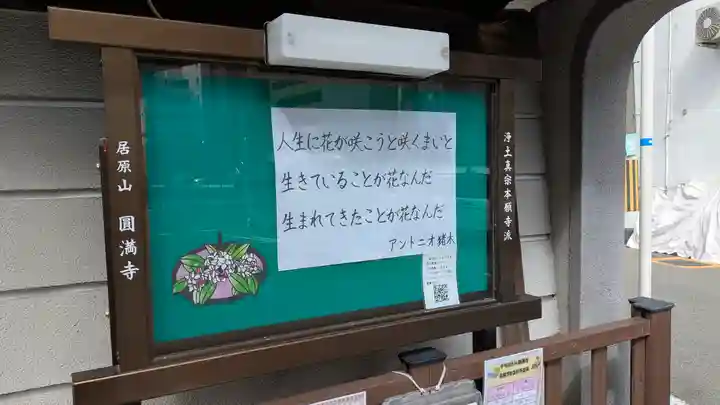 居原山 圓満寺
人生に花が咲こうと咲くまいと
生きていることが花なんだ
生まれてきたことが花なんだ
アントニオ猪木
浄土真宗本願寺派